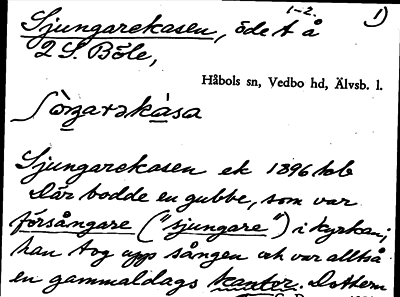 1-2. 1)
Sjungarekasen, öde t å
2 S. Böle,
Håbols sn, Vedbo hd, Älvsb. l.
Sjungarekasen ek 1896 tob
Där bodde en gubbe, som var
försångare ("sjungare") i kyrkan;
han tog upp sången och var alltså
en gammaldags kantor.